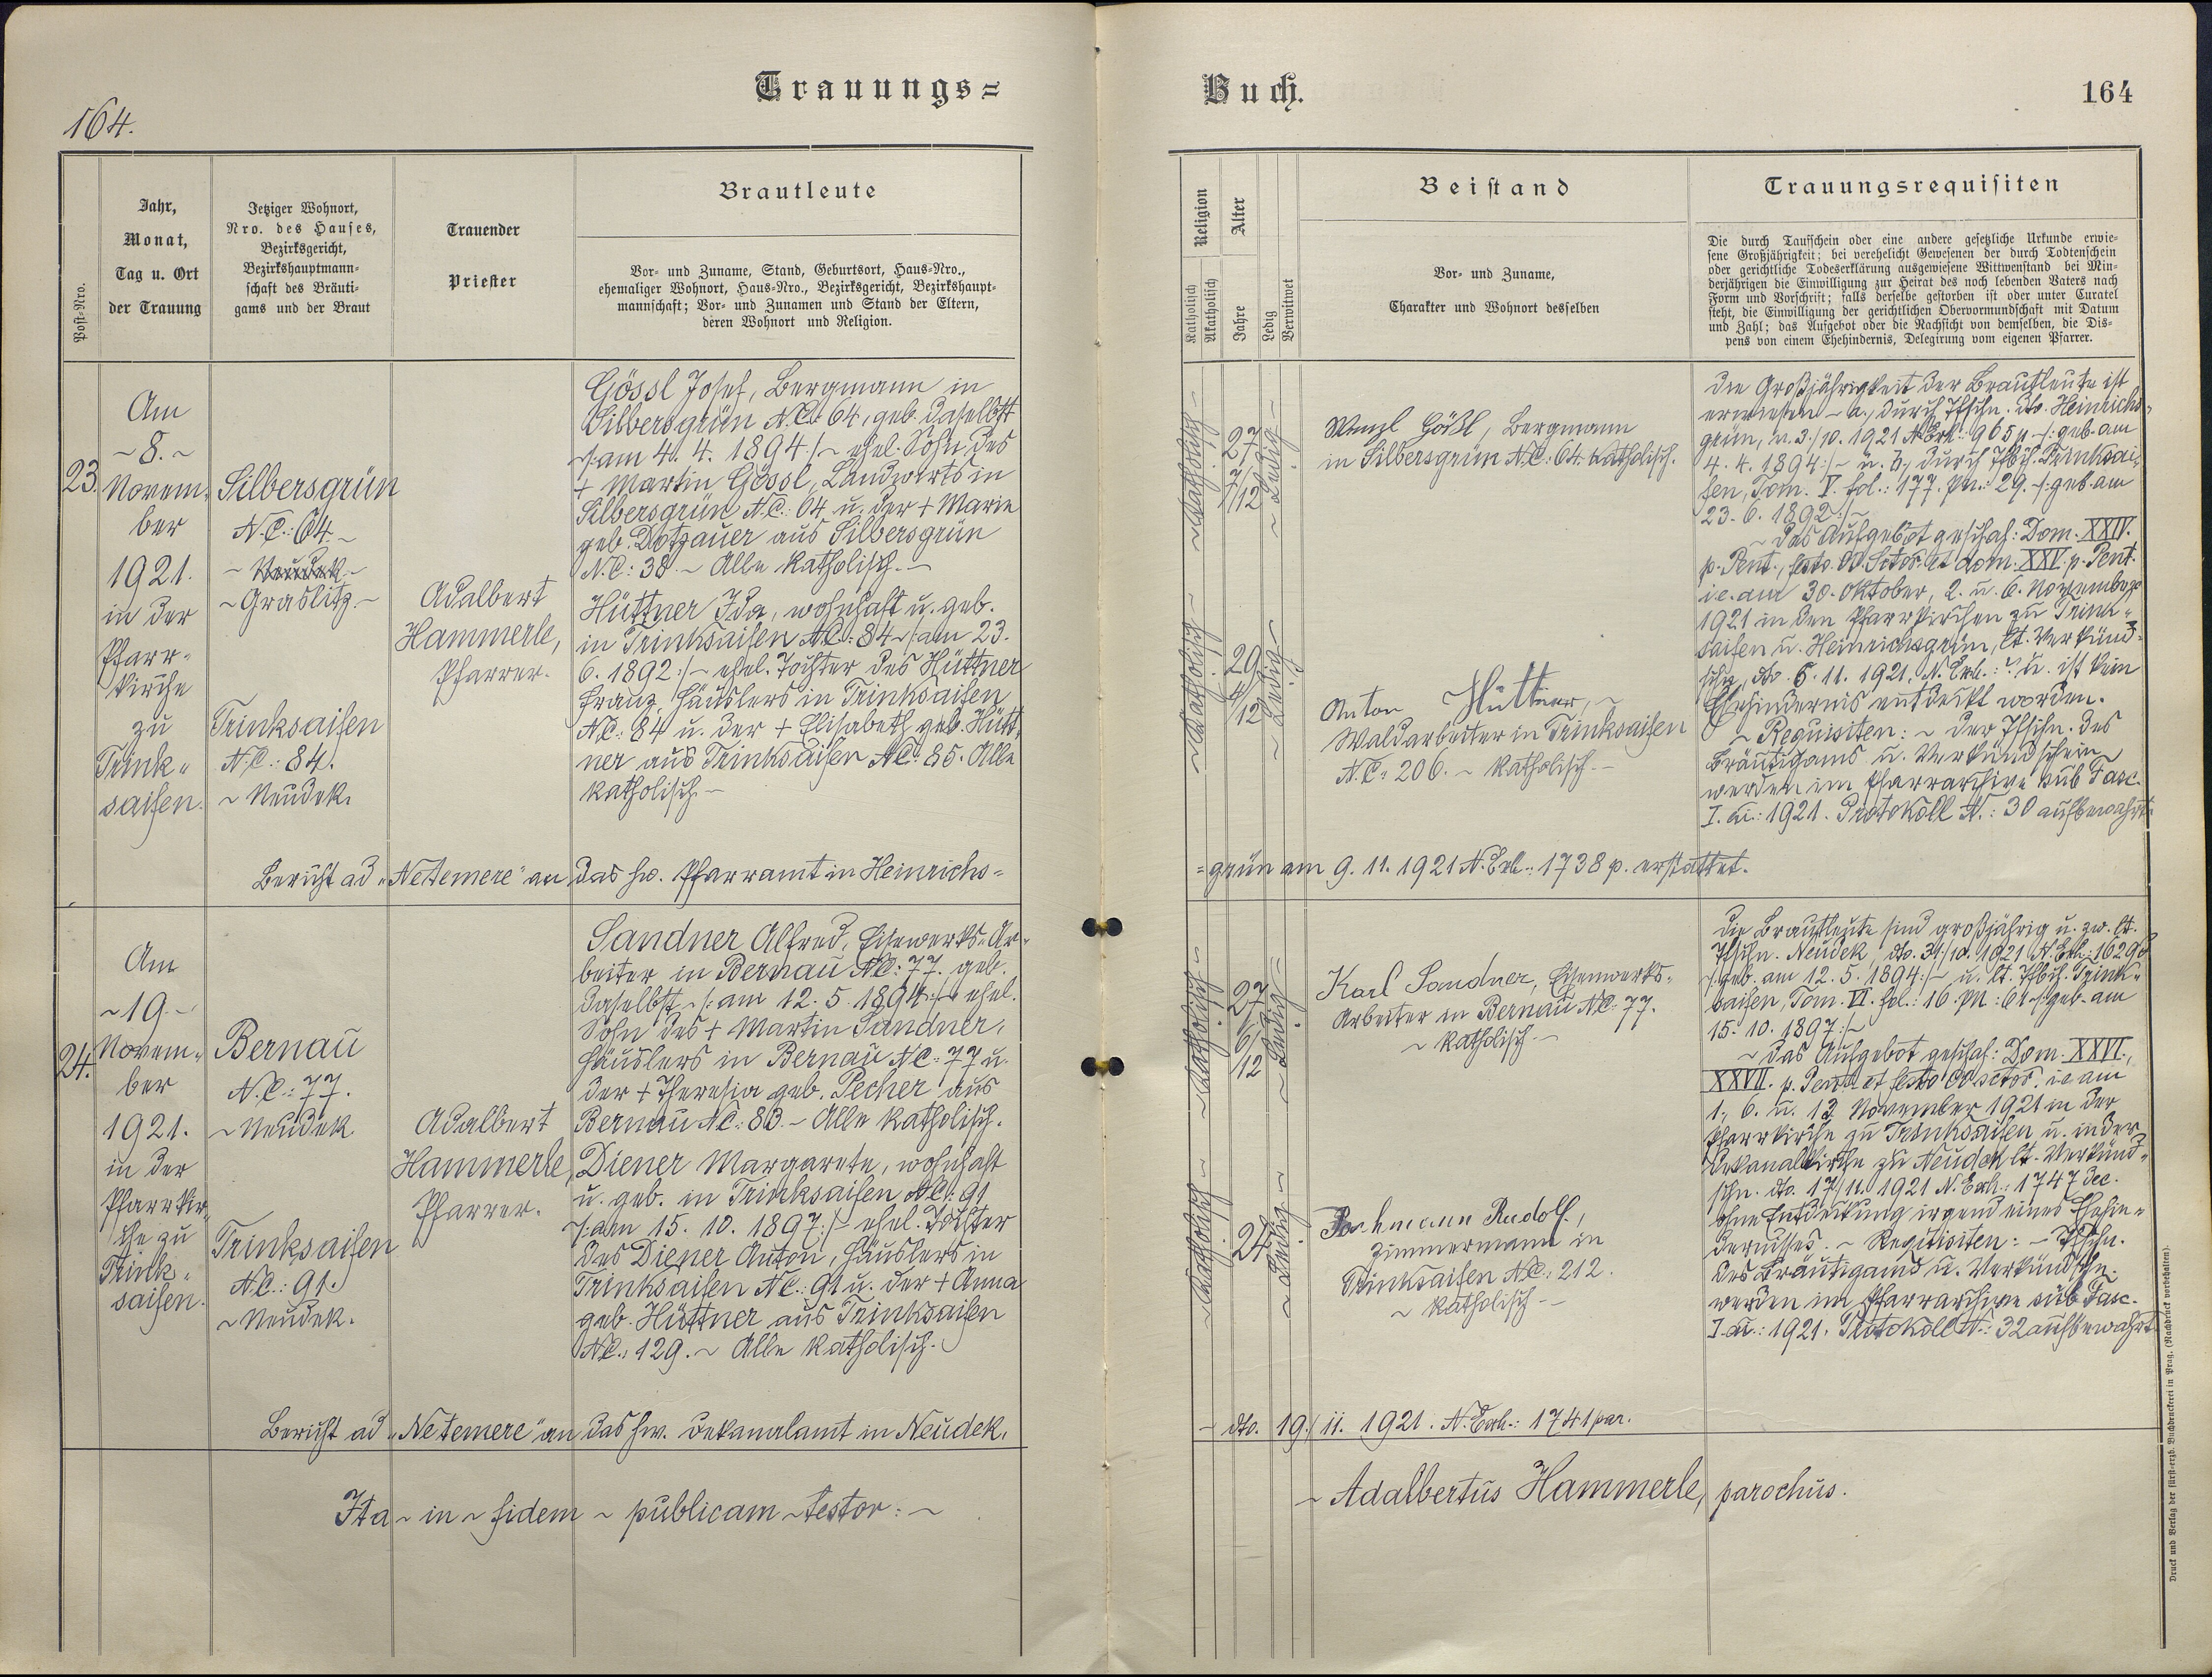 Trauungs=
164.
Post-Nro.
Jahr,
Monat,
Tag u. Ort
der Trauung
Jetziger Wohnort,
Nro. des Hauses,
Bezirksgericht,
Bezirkshauptmann-
schaft des Bräuti-
gams und der Braut
Trauender
Priester
Brautleute
Vor- und Zuname, Stand, Geburtsort, Haus-Nro.,
ehemaliger Wohnort, Haus-Nro., Bezirksgericht, Bezirkshaupt-
mannschaft; Vor- und Zunamen und Stand der Eltern,
deren Wohnort und Religion.
23.
Am
~ 8. ~
Novem-
ber
1921.
in der
Pfarr-
kirche
zu
Trink-
saifen.
Silbersgrün
N.C.: 64. ~
~ Neudek ~
~ Graslitz. ~
Trinksaifen
N.C.: 84.
~ Neudek.
Adalbert
Hammerle,
Pfarrer.
Gössl Josef, Bergmann in
Silbersgrün N.C.: 64, geb. daselbst
~/: am 4. 4. 1894 :/~ ehel. Sohn des
+ Martin Gössl, Landwirts in
Silbersgrün N.C.: 64 u. der + Marie
geb. Dotzauer aus Silbersgrün
N.C.: 38. ~ Alle katholisch. ~
Hüttner Ida, wohnhaft u. geb.
in Trinksaifen N.C.: 84 ~/: am 23.
6. 1892 :/~ ehel. Tochter des Hüttner
Franz, Häuslers in Trinksaifen
N.C.: 84 u. der + Elisabeth geb. Hütt-
ner aus Trinksaifen N.C.: 85. Alle
katholisch. ~
Bericht ad „Ne temere" an das hw. Pfarramt in Heinrichs=
24.
Am
~ 19. ~
Novem-
ber
1921.
in der
Pfarrkir-
che zu
Trink-
saifen.
Bernau
N.C.: 77.
~ Neudek
Trinksaifen
N.C.: 91.
~ Neudek.
Adalbert
Hammerle,
Pfarrer.
Sandner Alfred, Eisewerks-Ar-
beiter in Bernau N.C.: 77. geb.
daselbst ~/: am 12. 5. 1894 :/~ ehel.
Sohn des + Martin Sandner,
Häuslers in Bernau N.C.: 77 u.
der + Theresia geb. Pecher aus
Bernau N.C.: 83. ~ Alle katholisch.
Diener Margarete, wohnhaft
u. geb. in Trinksaifen N.C.: 91
~/: am 15. 10. 1897 :/~ ehel. Tochter
des Diener Anton, Häuslers in
Trinksaifen N.C.: 91 u. der + Anna
geb. Hüttner aus Trinksaifen
N.C.: 129. ~ Alle katholisch.
Bericht ad „Ne temere" an das hw. Dekanalamt in Neudek.
Ita ~ in ~ fidem ~ publicam ~ testor: ~
Buch.
164
Religion
Katholisch
Akatholisch
Alter
Jahre
Ledig
Verwitwet
Beistand
Vor- und Zuname,
Charakter und Wohnort desselben
Trauungsrequisiten
Die durch Taufschein oder eine andere gesetzliche Urkunde erwie-
sene Großjährigkeit; bei verehelicht Gewesenen der durch Todtenschein
oder gerichtliche Todeserklärung ausgewiesene Wittwenstand bei Min-
derjährigen die Einwilligung zur Heirat des noch lebenden Vaters nach
Form und Vorschrift; falls derselbe gestorben ist oder unter Curatel
steht, die Einwilligung der gerichtlichen Obervormundschaft mit Datum
und Zahl; das Aufgebot oder die Nachsicht von demselben, die Dis-
pens von einem Ehehindernis, Delegirung vom eigenen Pfarrer.
~ Katholisch ~
27 7/12
~ Ledig ~
~ Katholisch ~
29 4/12
~ Ledig ~
Wenzl Gößl, Bergmann
in Silbersgrün N.C.: 64. katholisch.
Anton Hüttner, ~
Waldarbeiter in Trinksaifen
N.C.: 206. ~ katholisch. ~
Die Großjährigkeit der Brautleute ist
erwiesen ~ a., durch Tfschn. dto. Heinrichs-
grün, n. 3./10. 1921 N. Exh.: 965 p ~/: geb. am
4. 4. 1894 :/~ u. b., durch Tfbch. Trinksai-
fen, Tom. V. fol.: 177. pn.: 29. ~/: geb. am
23. 6. 1892 :/~
~ Das Aufgebot geschah: Dom. XXIV.
p. Pent., festo OO. Sctor. et dom. XXV. p. Pent.
i.e. am 30. Oktober, 2. u. 6. November
1921 in den Pfarrkirchen zu Trink-
saifen u. Heinrichsgrün, lt. Verkünd-
schn. dto. 6. 11. 1921, N. Exh.: ? u. ist kein
Ehehindernis entdeckt worden.
~ Requisiten: ~ Der Tfschn. des
Bräutigams u. Verkündschein
werden im Pfarrarchive sub Fasc.
I. ai.: 1921. Protokoll N.: 30 aufbewahrt.
= grün am 9. 11. 1921 N. Exh.: 1738 p. erstattet.
~ Katholisch ~
27 6/12
~ Ledig ~
~ Katholisch ~
24
~ Ledig ~
Karl Sandner, Eisenwerks-
Arbeiter in Bernau N.C.: 77.
~ katholisch. ~
Bachmann Rudolf,
Zimmermann in
Trinksaifen N.C.: 212.
~ katholisch ~
Die Brautleute sind großjährig u. zw. lt.
Tfschn. Neudek, dto. 31./10. 1921 N. Exh.: 1629
/: geb. am 12. 5. 1894 :/~ u. lt. Tfbch. Trink-
saifen, Tom. VI. fol.: 16. pn.: 61 ~/: geb. am
15. 10. 1897 :/~
~ Das Aufgebot geschah: Dom. XXVI.,
XXVII. p. Pent. et festo OO sctor. i.e. am
1., 6. u. 13. November 1921 in der
Pfarrkirche zu Trinksaifen u. in der
Dekanalkirche zu Neudek lt. Verkünd-
schn. dto. 17/11. 1921 N. Exh.: 1747 dec.
ohne Entdeckung irgend eines Ehehin-
dernisses. ~ Requisiten: ~ Tfschn.
des Bräutigams u. Verkündschn.
werden im Pfarrarchive sub Fasc.
I. ai.: 1921. Protokoll N.: 32 aufbewahrt
~ dto. 19./11. 1921. N. Exh.: 1741 par.
~ Adalbertus Hammerle, parochus.
Druck und Verlag der fürst-erzb. Buchdruckerei in Prag. (Nachdruck vorbehalten).